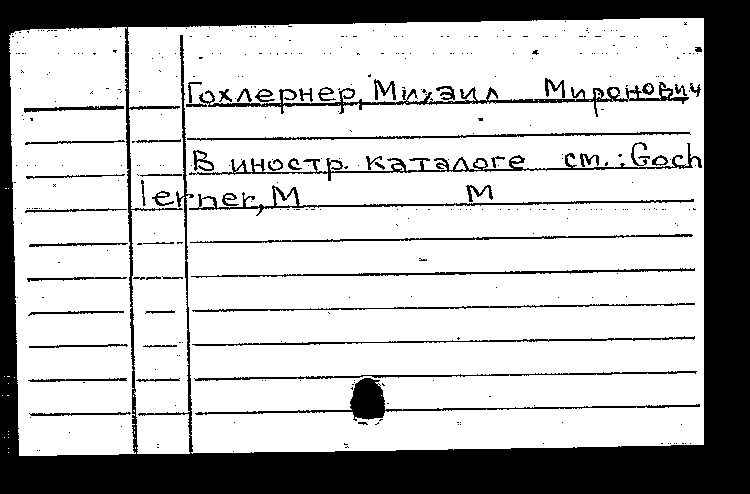 Гохлернер, Михаил Миронович
В иностр. каталоге см.: Goch
lerner, M M